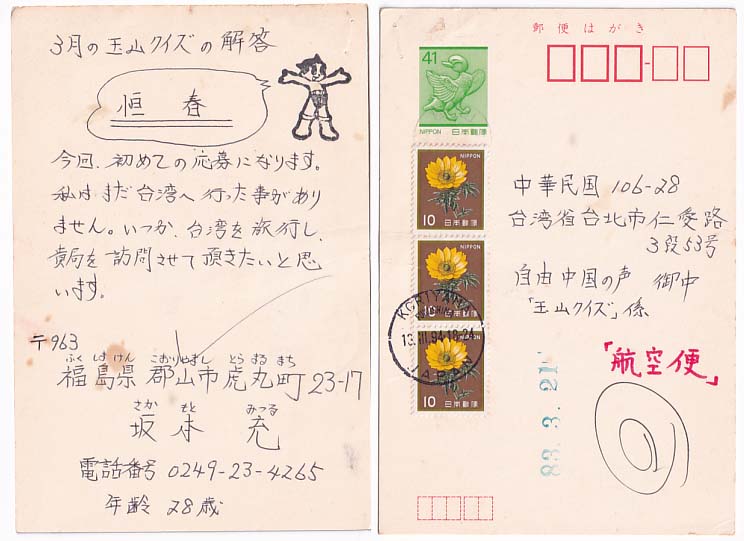 3月の玉山クイズの解答
恒春
今回、初めての応募になります。
私はまだ台湾へ行った事があり
ません。いつか、台湾を旅行し、
貴局を訪問させて頂きたいと思
います。
〒963
ふくしまけん こおりやまし とらまるまち
福島県郡山市虎丸町23-17
さかもと みつる
坂本 充
電話番号 0249-23-4265
年齢 28歳
郵便はがき
41
NIPPON 日本郵便
NIPPON
10 日本郵便
NIPPON
10 日本郵便
NIPPON
10 日本郵便
KORIYAMA
13.III.94.18-24
JAPAN
中華民国 106-28
台湾省台北市仁愛路
3段53号
自由中国の声 御中
「玉山クイズ」係
「航空便」
83.3.21